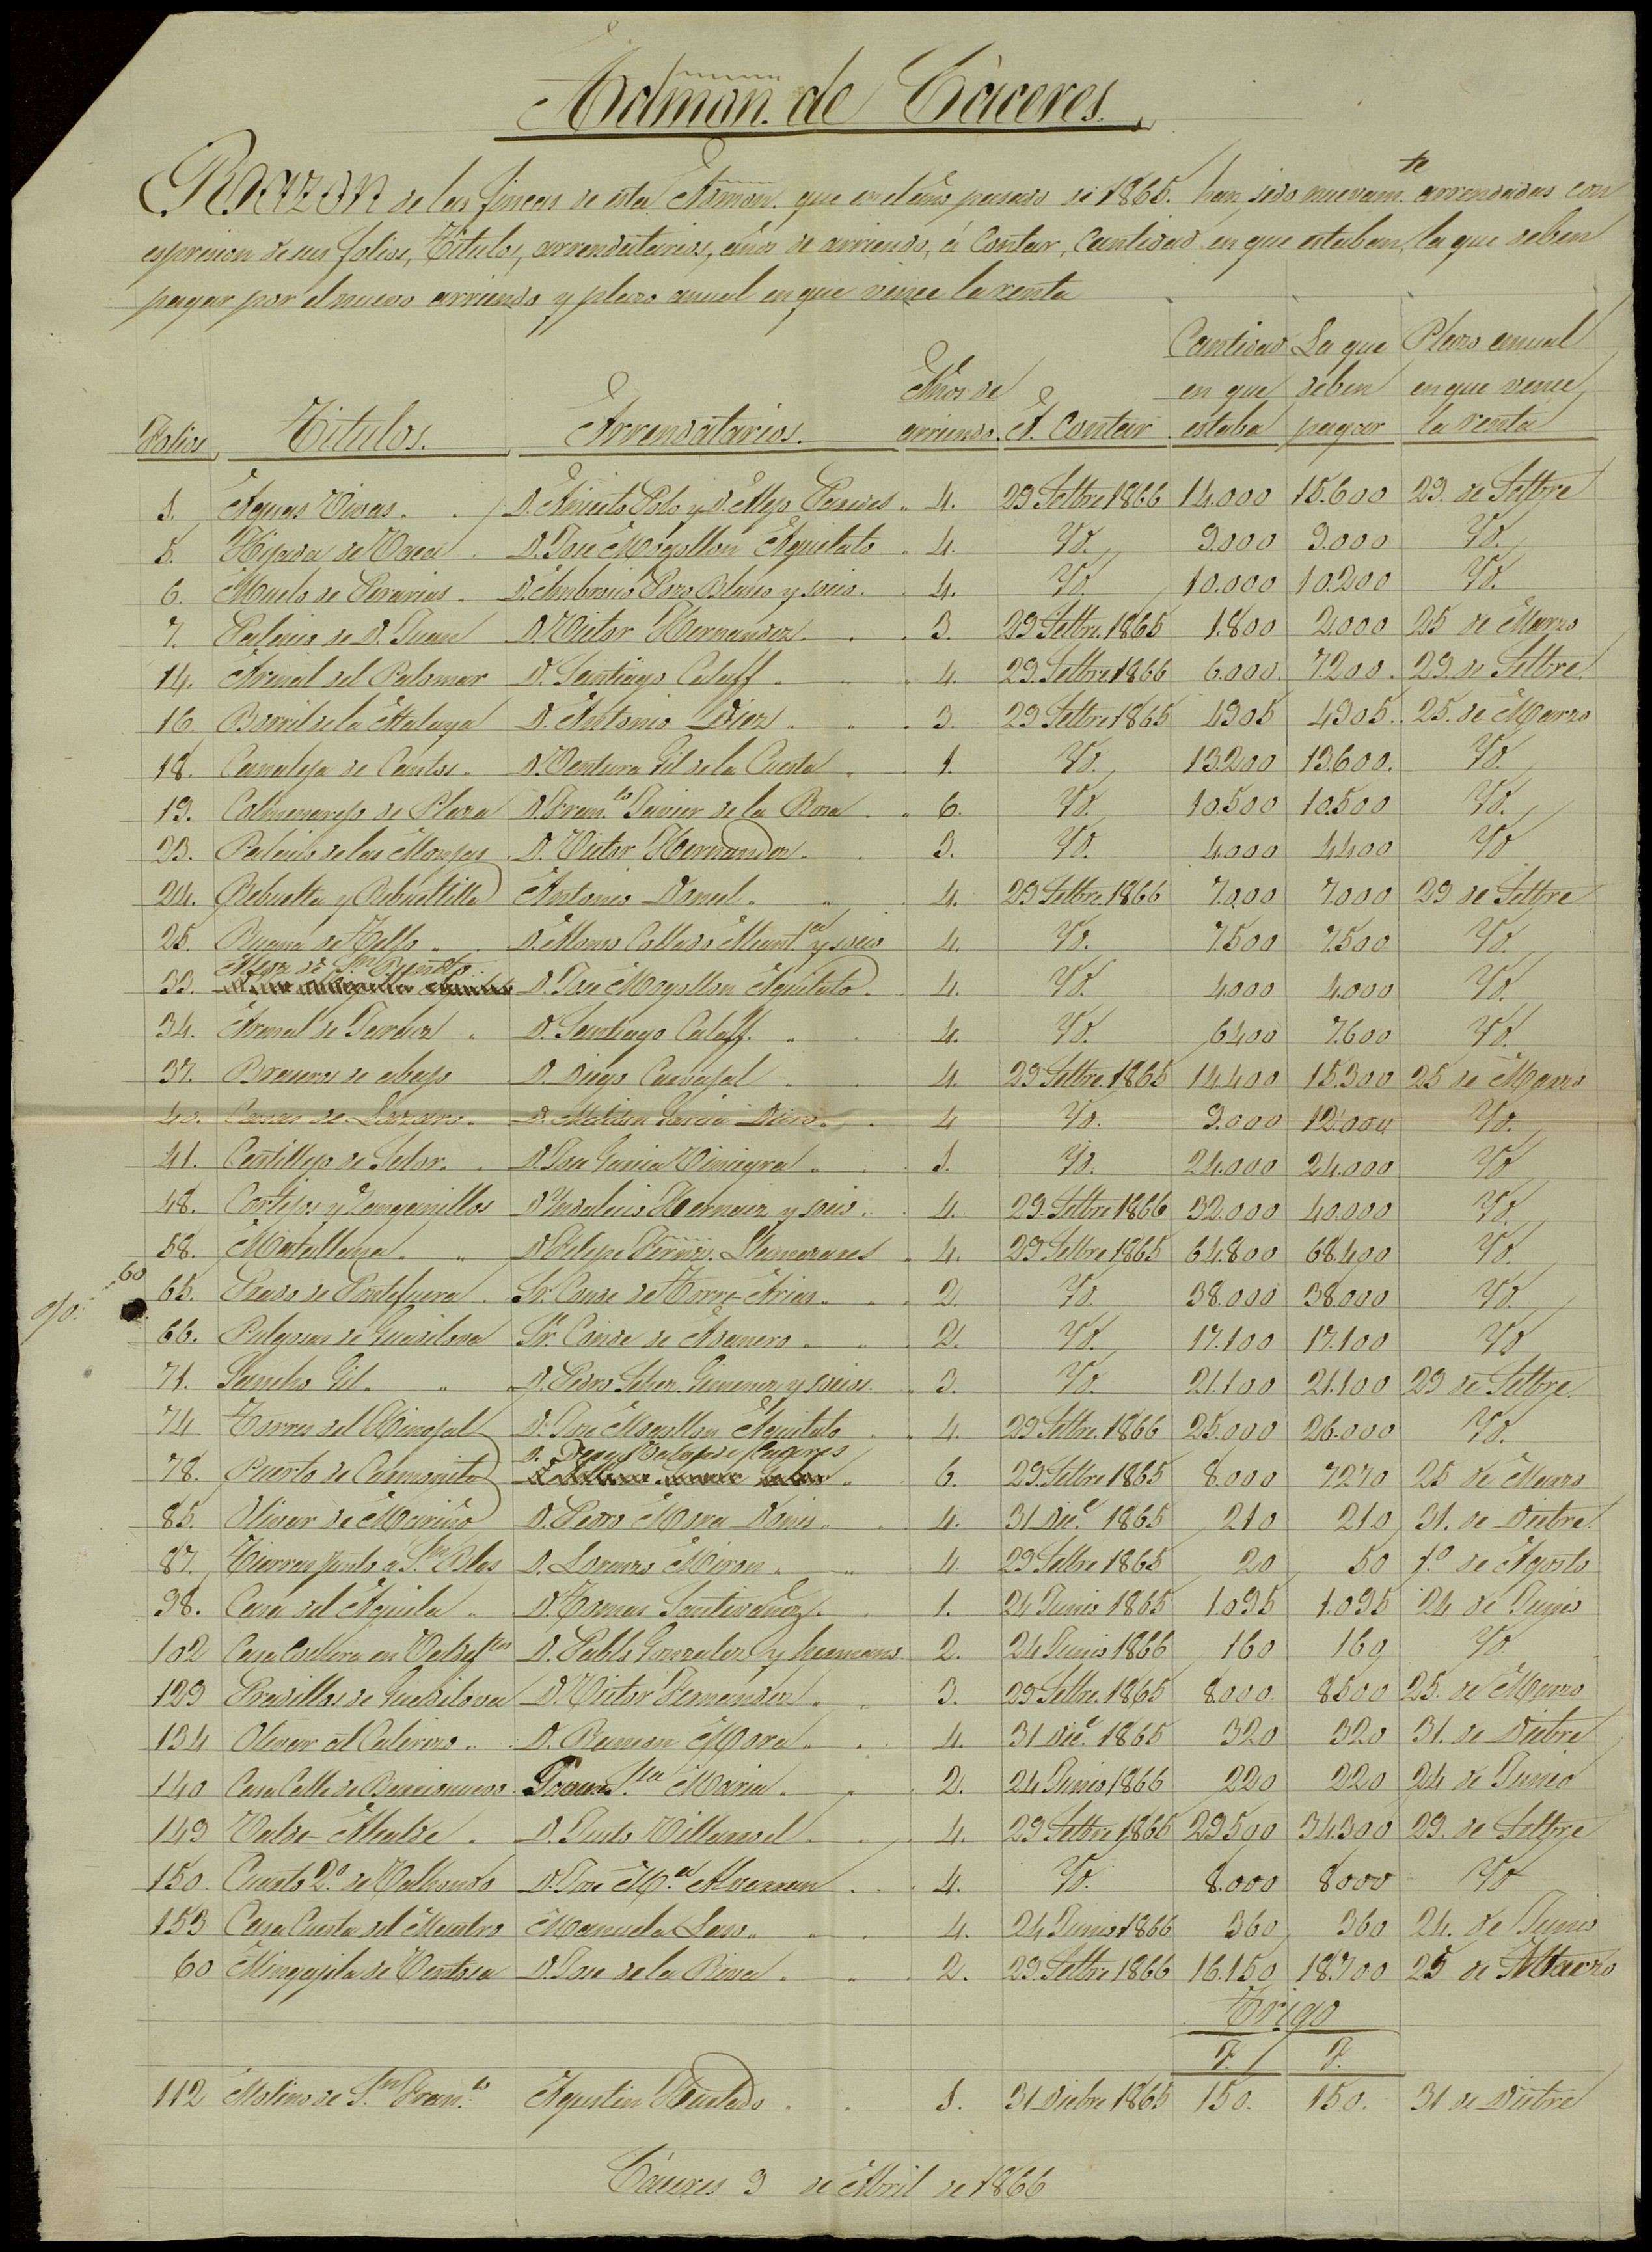 Admon. de Cáceres.
Razon de las fincas de esta Admon. que en el año pasado de 1865. han sido nuevam.te arrendadas con
espresion de sus folios, Titulos, arrendatarios, años de arriendo, á Contar, Cantidad en que estaban, la que deben
pagar por el nuevo arriendo y plazo anual en que vence la renta
Folios Titulos. Arrendatarios. Años de arriendo. A Contar Cantidad en que estaba La que deben pagar Plazo anual en que vence la renta
1. Aguas Vivas. D. Aniceto Polo y D. Alejo Paredes 4. 29 Setbre 1866 14.000 15.600 29. de Setbre
5. Hijada de Vaca D. Jose Mogollon Aguilato 4. Yd. 9.000 9.000 Yd.
6. Muelo de Perarias. D. Ambrosio Pozo Blasco y socio. 4. Yd. 10.000 10.200 Yd.
7. Palacio de D. Juan D. Victor Hernandez. 3. 29 Setbre 1865 1.800 2.000 25 de Marzo
14. Arenal del Palomar D. Santiago Calaff 4. 29 Setbre 1866 6.000. 7.200. 29 de Setbre
16. Barril de la Atalaya D. Antonio Diez 3. 29 Setbre 1865 4905 4905. 25. de Marzo
18. Canaleja de Cantos. D. Ventura Gil de la Cuesta 1. Yd. 13.200 13.600. Yd.
19. Colmenarejo de Plaza D. Fran.co Javier de la Rosa 6. Yd. 10.500 10.500 Yd.
23. Palacio de las Monjas D. Victor Hernandez. 3. Yd. 4.000 4.400 Yd
24. Rebuelta y Rebueltilla Antonio Donel. 4. 29 Setbre 1866 7.000 7.000 29 de Setbre
25. Ruana de Tello D. Alonso Collado Mant.ca y socio 4. Yd. 7.500 7.500 Yd.
Alcor de Sn. Benito
33. D. Jose Mogollon Aguilato 4. Yd. 4.000 4.000 Yd.
34. Arenal de Saraiz D. Santiago Calaff. 4. Yd. 6400 7.600 Yd.
37. Braseros de abajo D. Diego Carvajal 4. 29 Setbre 1865 14.400 15.300 25 de Marzo
40. Casas de Lazaro. D. Meliton Garcia Diaz 4 Yd. 9.000 12.000 Yd.
41. Castillejo de Solor. D. Jose Garcia Viniegra 1. Yd. 24.000 24.000 Yd
48. Cortijos y Zangarrillos D. Yndalecio Hernaiz y socio. 4. 29. Setbre 1866 32.000 40.000 Yd.
58. Matallana. D. Felipe Fernz. Llamazares 4. 29 Setbre 1865 64.800 68.400 Yd.
60
ojo.
65. Prado de Pontefuera Sr. Conde de Torre-Arias. 2. Yd. 38.000 38.000 Yd.
66. Pulgosas de Guadiloba Sr. Conde de Adanero 2. Yd. 17.100 17.100 Yd
71. Sancho Gil. D. Pedro Gimenez y socios. 3. Yd. 21.100 21.100 29 de Setbre
74 Torres del Hinojal D. Jose Mogollon Aguilato 4. 29 Setbre 1866 25.000 26.000 Yd.
78. Puerto de Carmonita D. Diego 6. 29 Setbre 1865 8.000 7270 25 de Marzo
85. Olivar de Mariño D. Pedro Mora Donis 4. 31 Dic.e 1865 210 210 31. de Dicbre
87. Tierras junto a Sn. Blas D. Lorenzo Miron 4. 29 Setbre 1865 20 50 1.º de Agosto
98. Casa del Aguila D. Tomas Santivañez. 1. 24 Junio 1865 1.095 1.095 24 de Junio
102 Casa en D. Pablo Gonzalez y hermano 2. 24 Junio 1866 160 160 Yd
129 Pradillos de Guadiloba D. Victor Fernandez 3. 29 Setbre 1865 8.000 8500 25. de Marzo
134 Olivar al Calerizo D. Ramon Mora 4. 31 Dic.e 1865 320 320 31. de Dicbre
140 Casa Calle de Barrionuevo Fran.ca Maria 2. 24 Junio 1866 220 220 24 de Junio
149 Valde-Alcalde D. Justo Villanuel 4. 29 Setbre 1865 29500 34.300 29. de Setbre
150 Cuarto 2.º de Valhondo D. Jose M.a Alvarran 4. Yd. 8.000 8000 Yd
153 Casa Cuesta del Maestro Manuela Laso 4. 24 Junio 1866 360 360 24. de Junio
60 Mingajila de Ventosa D. Jose de la Riva 2. 29 Setbre 1866 16.150 18.700 25 de Marzo
Trigo
F. F.
112 Molino de Sn. Fran.co Agustin Hurtado 1. 31 Dicbre 1865 150. 150. 31 de Dicbre
Cáceres 9 de Abril de 1866